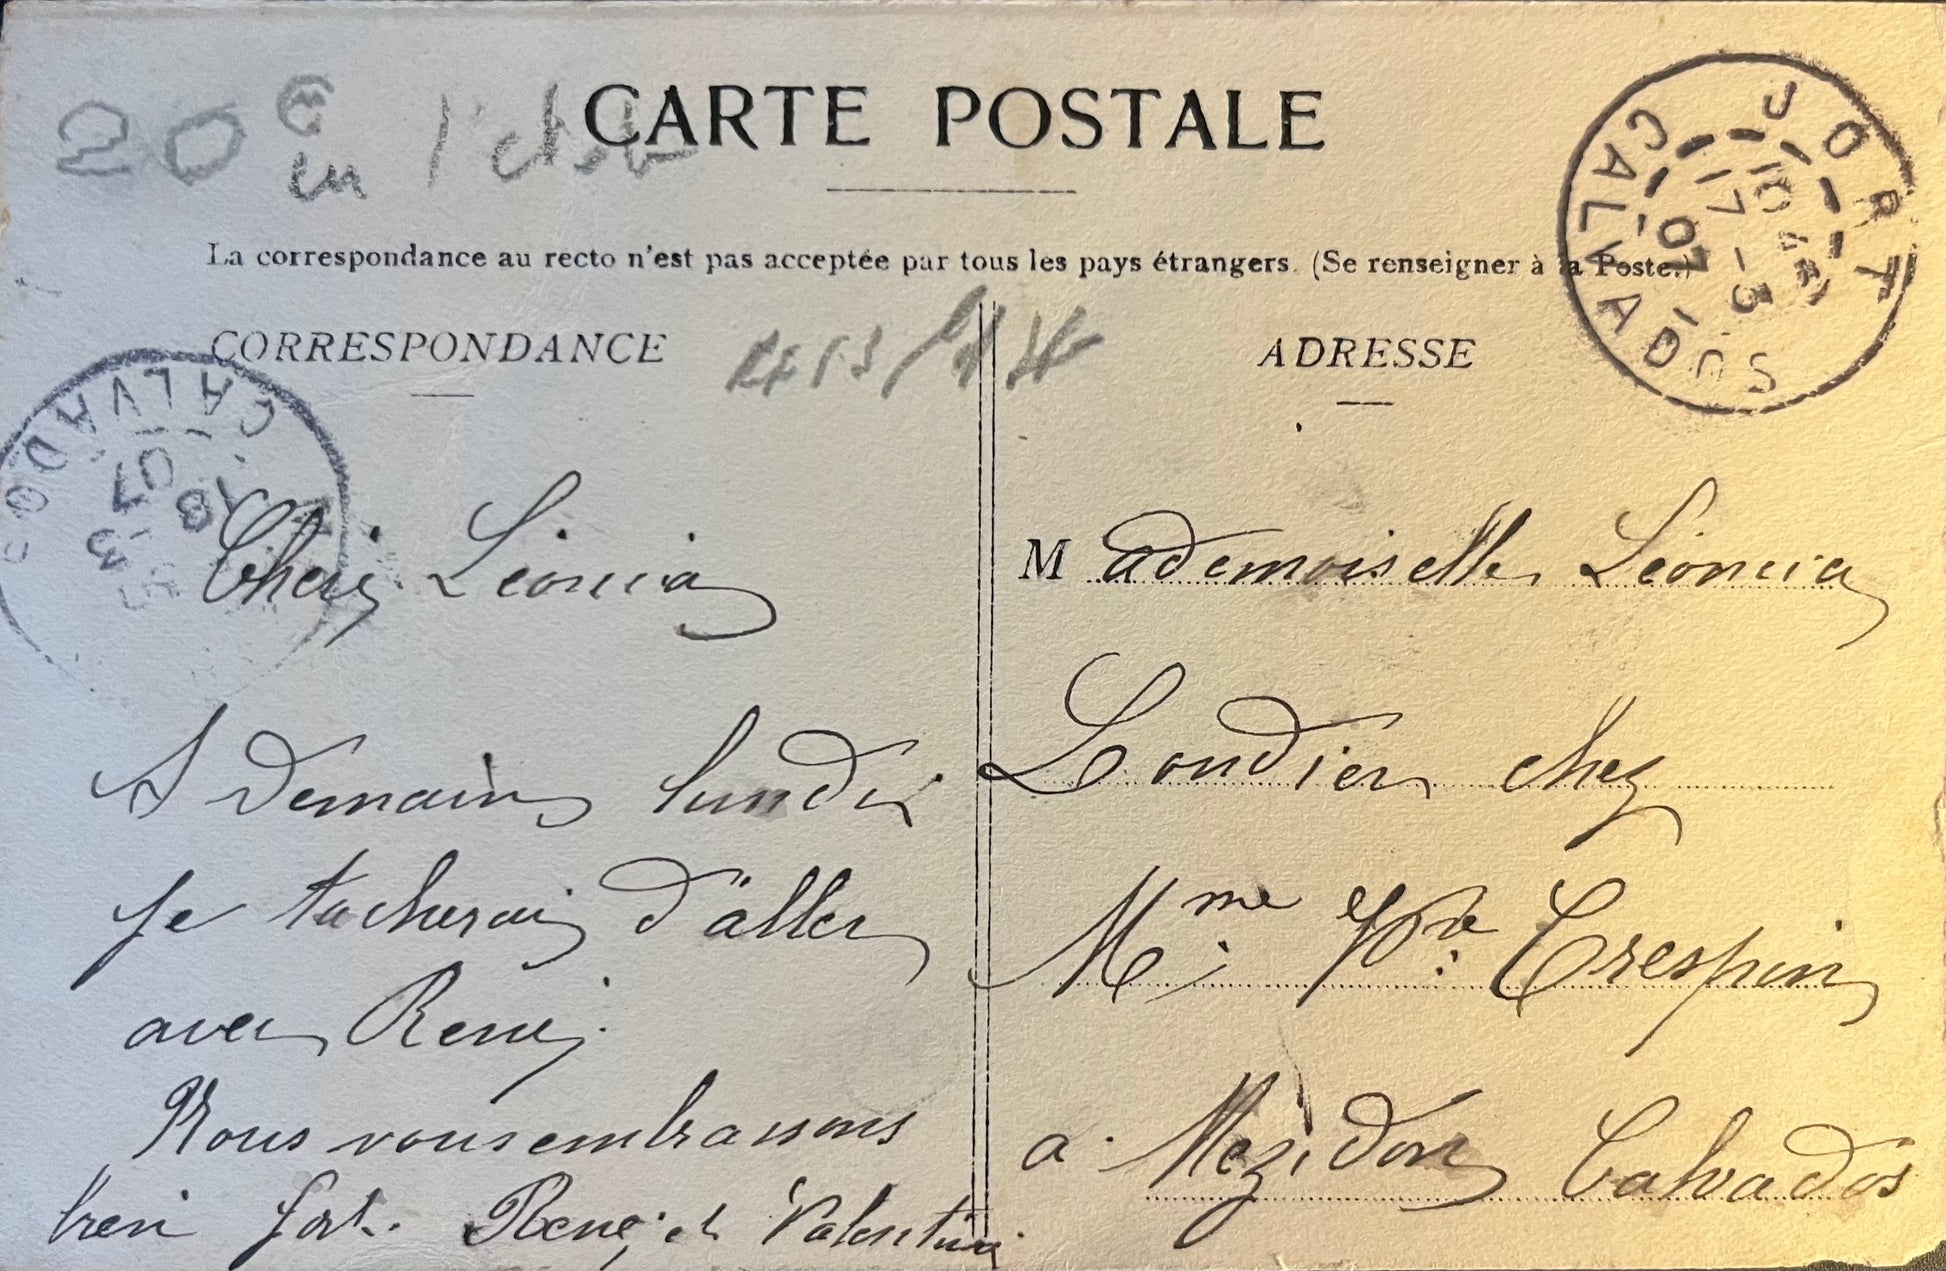 CARTE POSTALE
20 € en l'état
La correspondance au recto n'est pas acceptée par tous les pays étrangers. (Se renseigner à la Poste.)
CORRESPONDANCE
Cheri Léoncia
A Demain lundi
je tacherai d'aller
avec René.
Nous vous embrassons
bien fort. René et Valentine
ADRESSE
Mademoiselle Léoncia
Londier chez
Mme Vve Crespin
a Mezidon Calvados
JORT
10 45
17 - 3
07
CALVADOS
CALVADOS
18
- 3
07